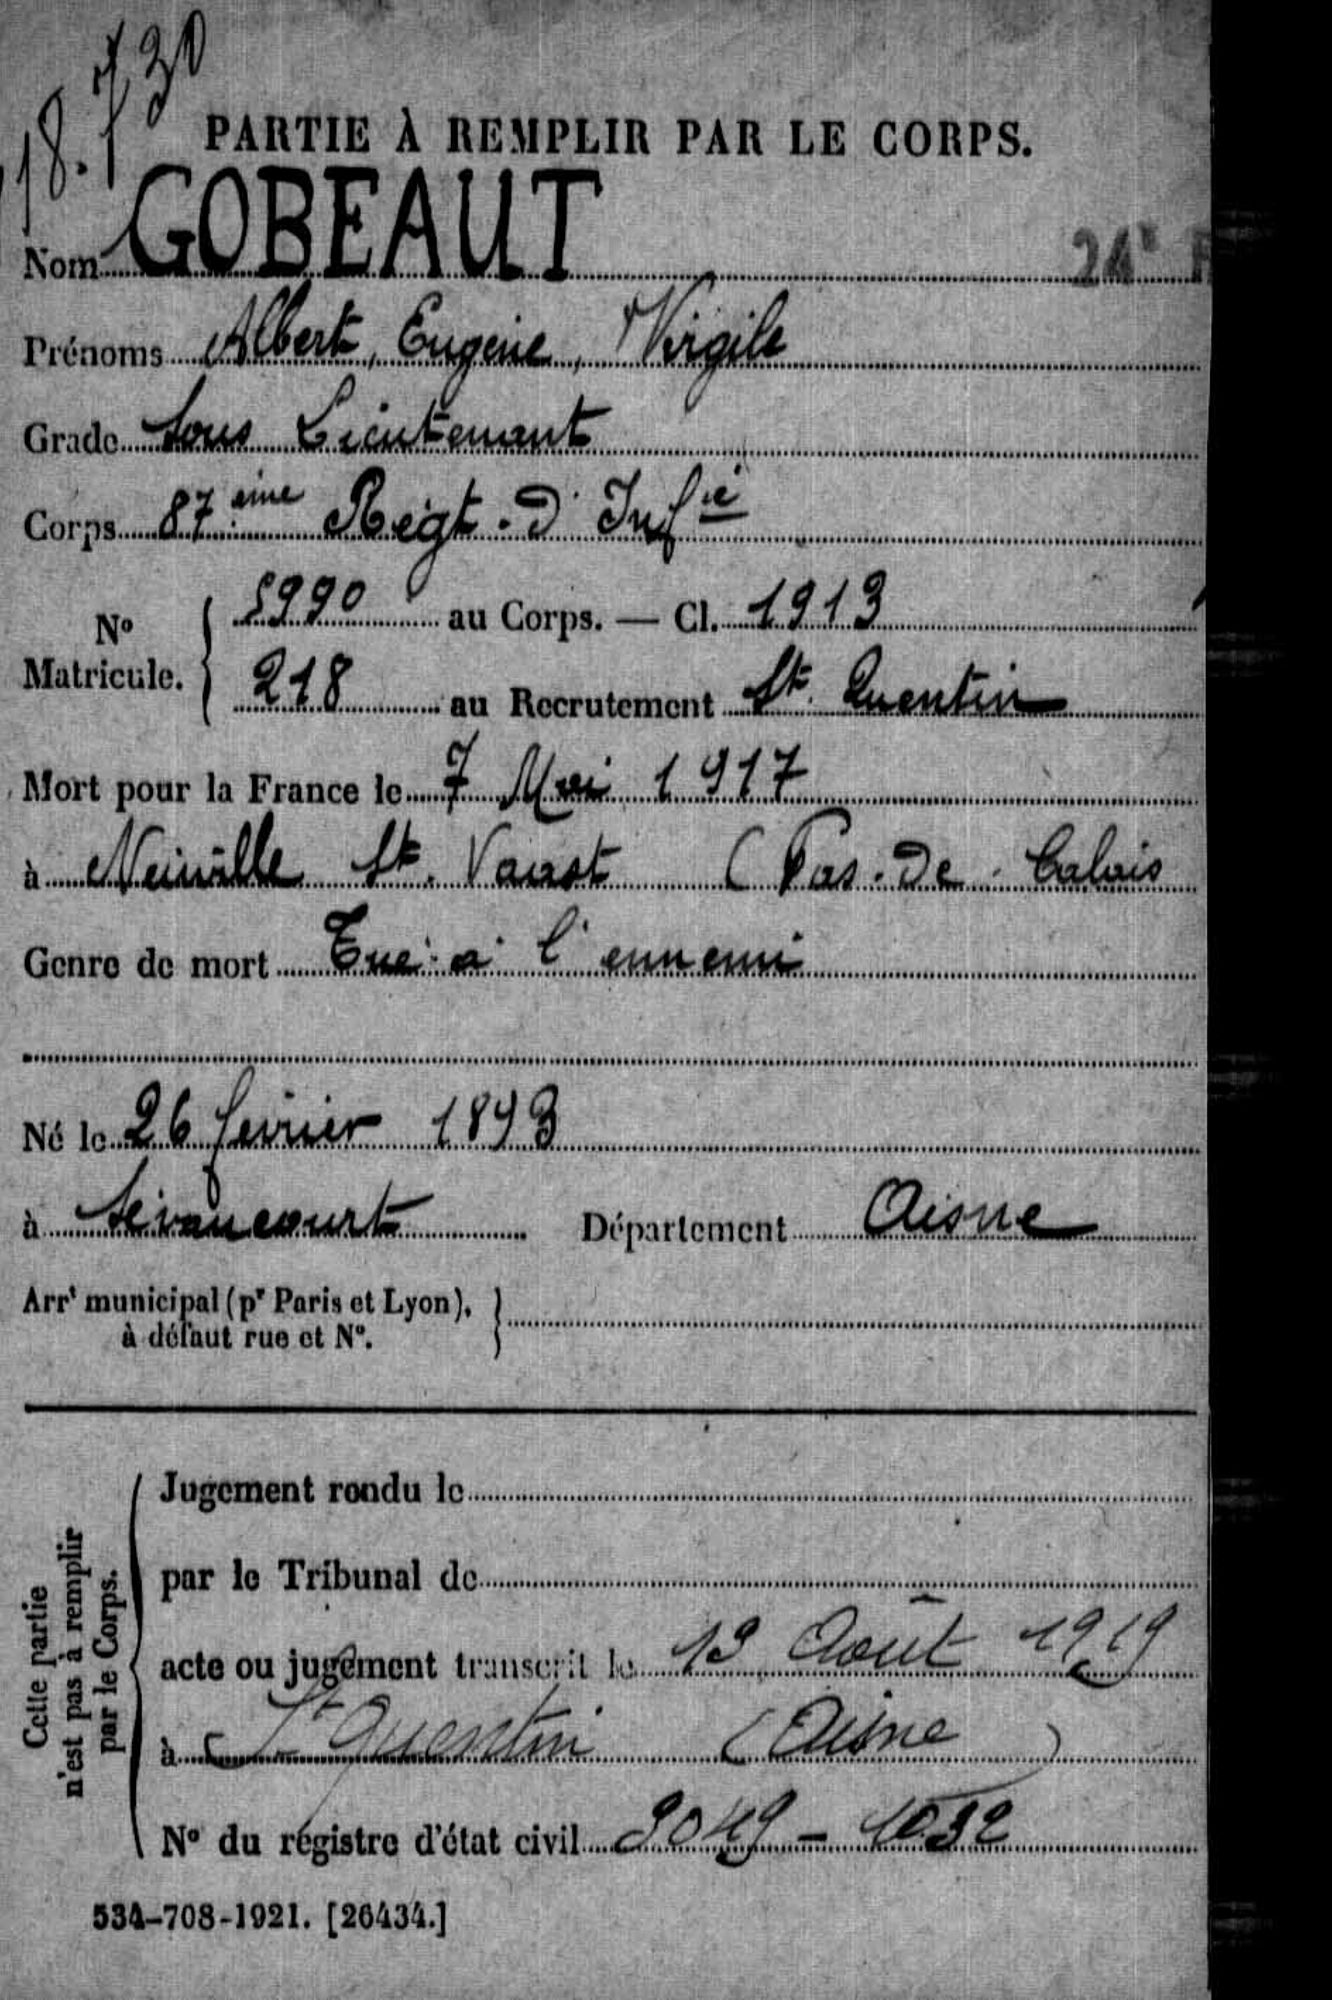 18.730
PARTIE À REMPLIR PAR LE CORPS.
Nom GOBEAUT
24e
Prénoms Albert, Eugène, Virgile
Grade Sous Lieutenant
Corps 87ème Régt. d'Infie
No Matricule. { 5990 au Corps. — Cl. 1913
218 au Recrutement St. Quentin
Mort pour la France le 7 Mai 1917
à Neuville St. Vaast (Pas-de-Calais
Genre de mort Tué à l'ennemi
Né le 26 février 1893
à Seraucourt Département Aisne
Arrt municipal (pr Paris et Lyon),
à défaut rue et No.
Cette partie
n'est pas à remplir
par le Corps.
Jugement rendu le
par le Tribunal de
acte ou jugement transcrit le 19 Août 1919
à St Quentin (Aisne)
No du registre d'état civil 9049 - 1032
534-708-1921. [26434.]